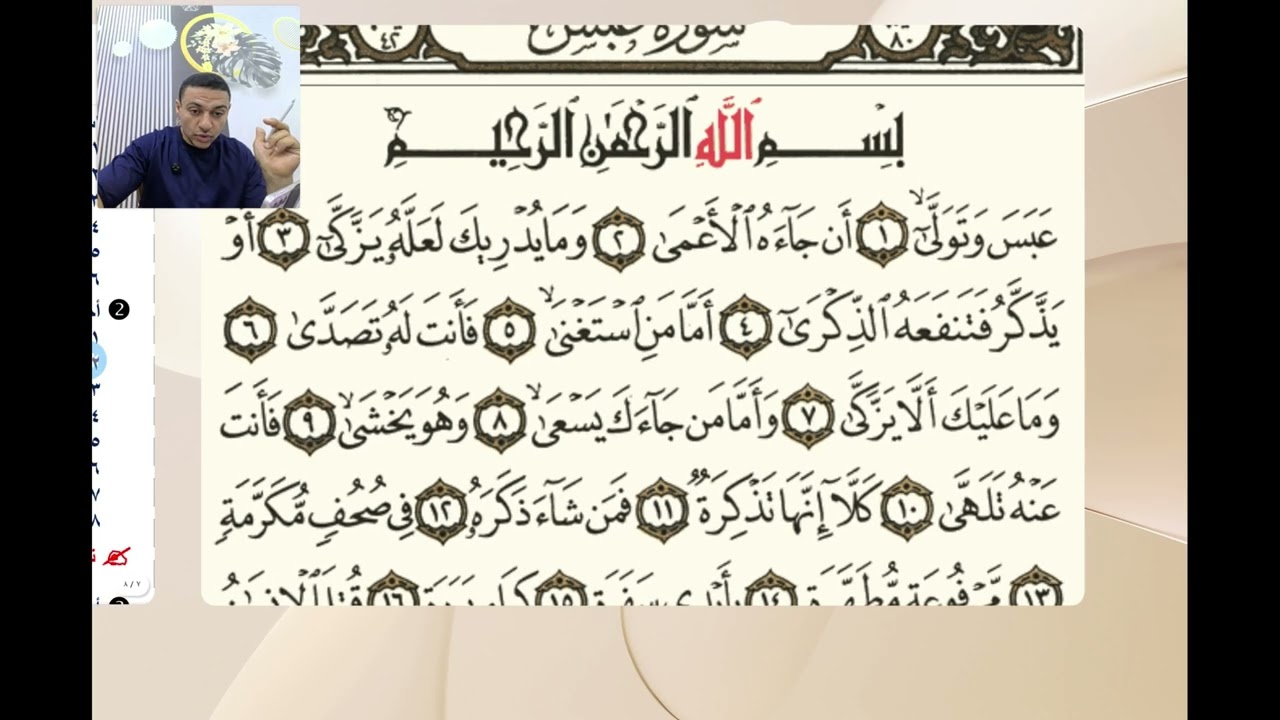 سورة عبس
٤٢
٨٠
بِسْمِ ٱللَّهِ ٱلرَّحْمَٰنِ ٱلرَّحِيمِ
عَبَسَ وَتَوَلَّىٰٓ ١ أَن جَآءَهُ ٱلْأَعْمَىٰ ٢ وَمَا يُدْرِيكَ لَعَلَّهُۥ يَزَّكَّىٰٓ ٣ أَوْ
يَذَّكَّرُ فَتَنفَعَهُ ٱلذِّكْرَىٰٓ ٤ أَمَّا مَنِ ٱسْتَغْنَىٰ ٥ فَأَنتَ لَهُۥ تَصَدَّىٰ ٦
وَمَا عَلَيْكَ أَلَّا يَزَّكَّىٰ ٧ وَأَمَّا مَن جَآءَكَ يَسْعَىٰ ٨ وَهُوَ يَخْشَىٰ ٩ فَأَنتَ
عَنْهُ تَلَهَّىٰ ١٠ كَلَّآ إِنَّهَا تَذْكِرَةٌ ١١ فَمَن شَآءَ ذَكَرَهُۥ ١٢ فِى صُحُفٍ مُّكَرَّمَةٍ
١٣ مَّرْفُوعَةٍ مُّطَهَّرَةٍ ١٤ بِأَيْدِى سَفَرَةٍ ١٥ كِرَامٍ بَرَرَةٍ ١٦ قُتِلَ ٱلْإِنسَٰنُ
٤
٥
٦
2
٢
٣
٤
٥
٦
٧
٨
٨/٧